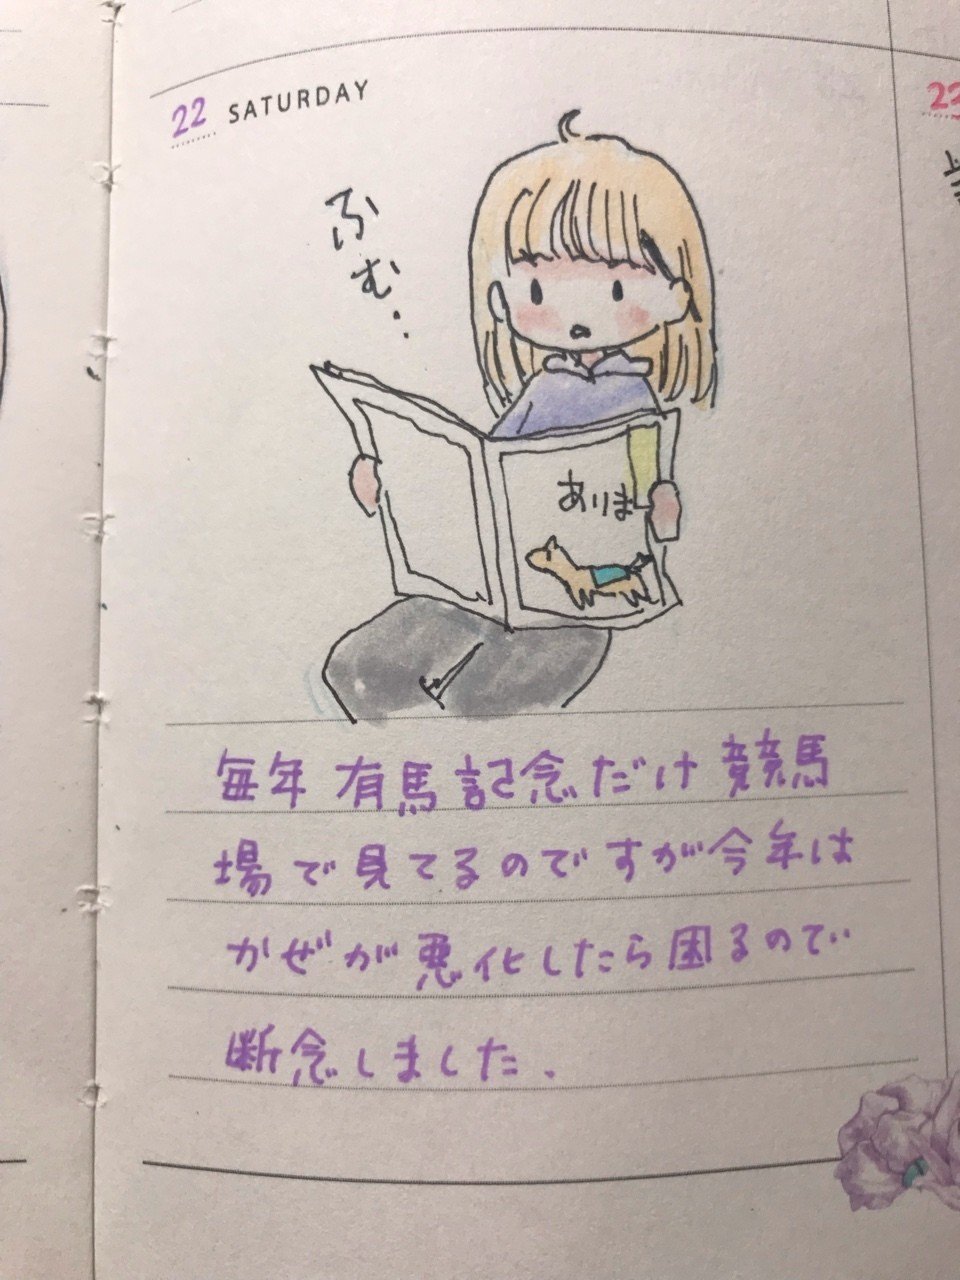 22 SATURDAY
22
ふむ..
ありま
毎年有馬記念だけ競馬
場で見てるのですが今年は
かぜが悪化したら困るので
断念しました.